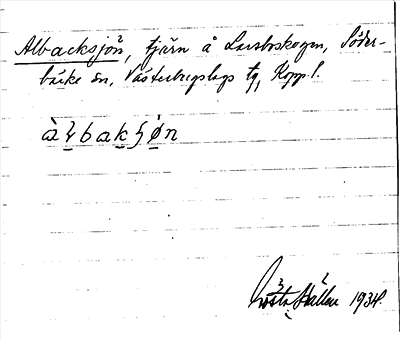 Albacksjön, tjärn å Lusboskogen, Söder-
bärke sn, Västerbergslags tg, Kopp. l.
àɫbakʂø̀n
Gösta Hållen 1934.